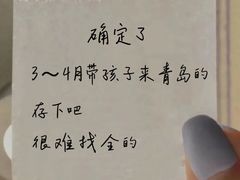 确定了
3～4月带孩子来青岛的
存下吧
很难找全的